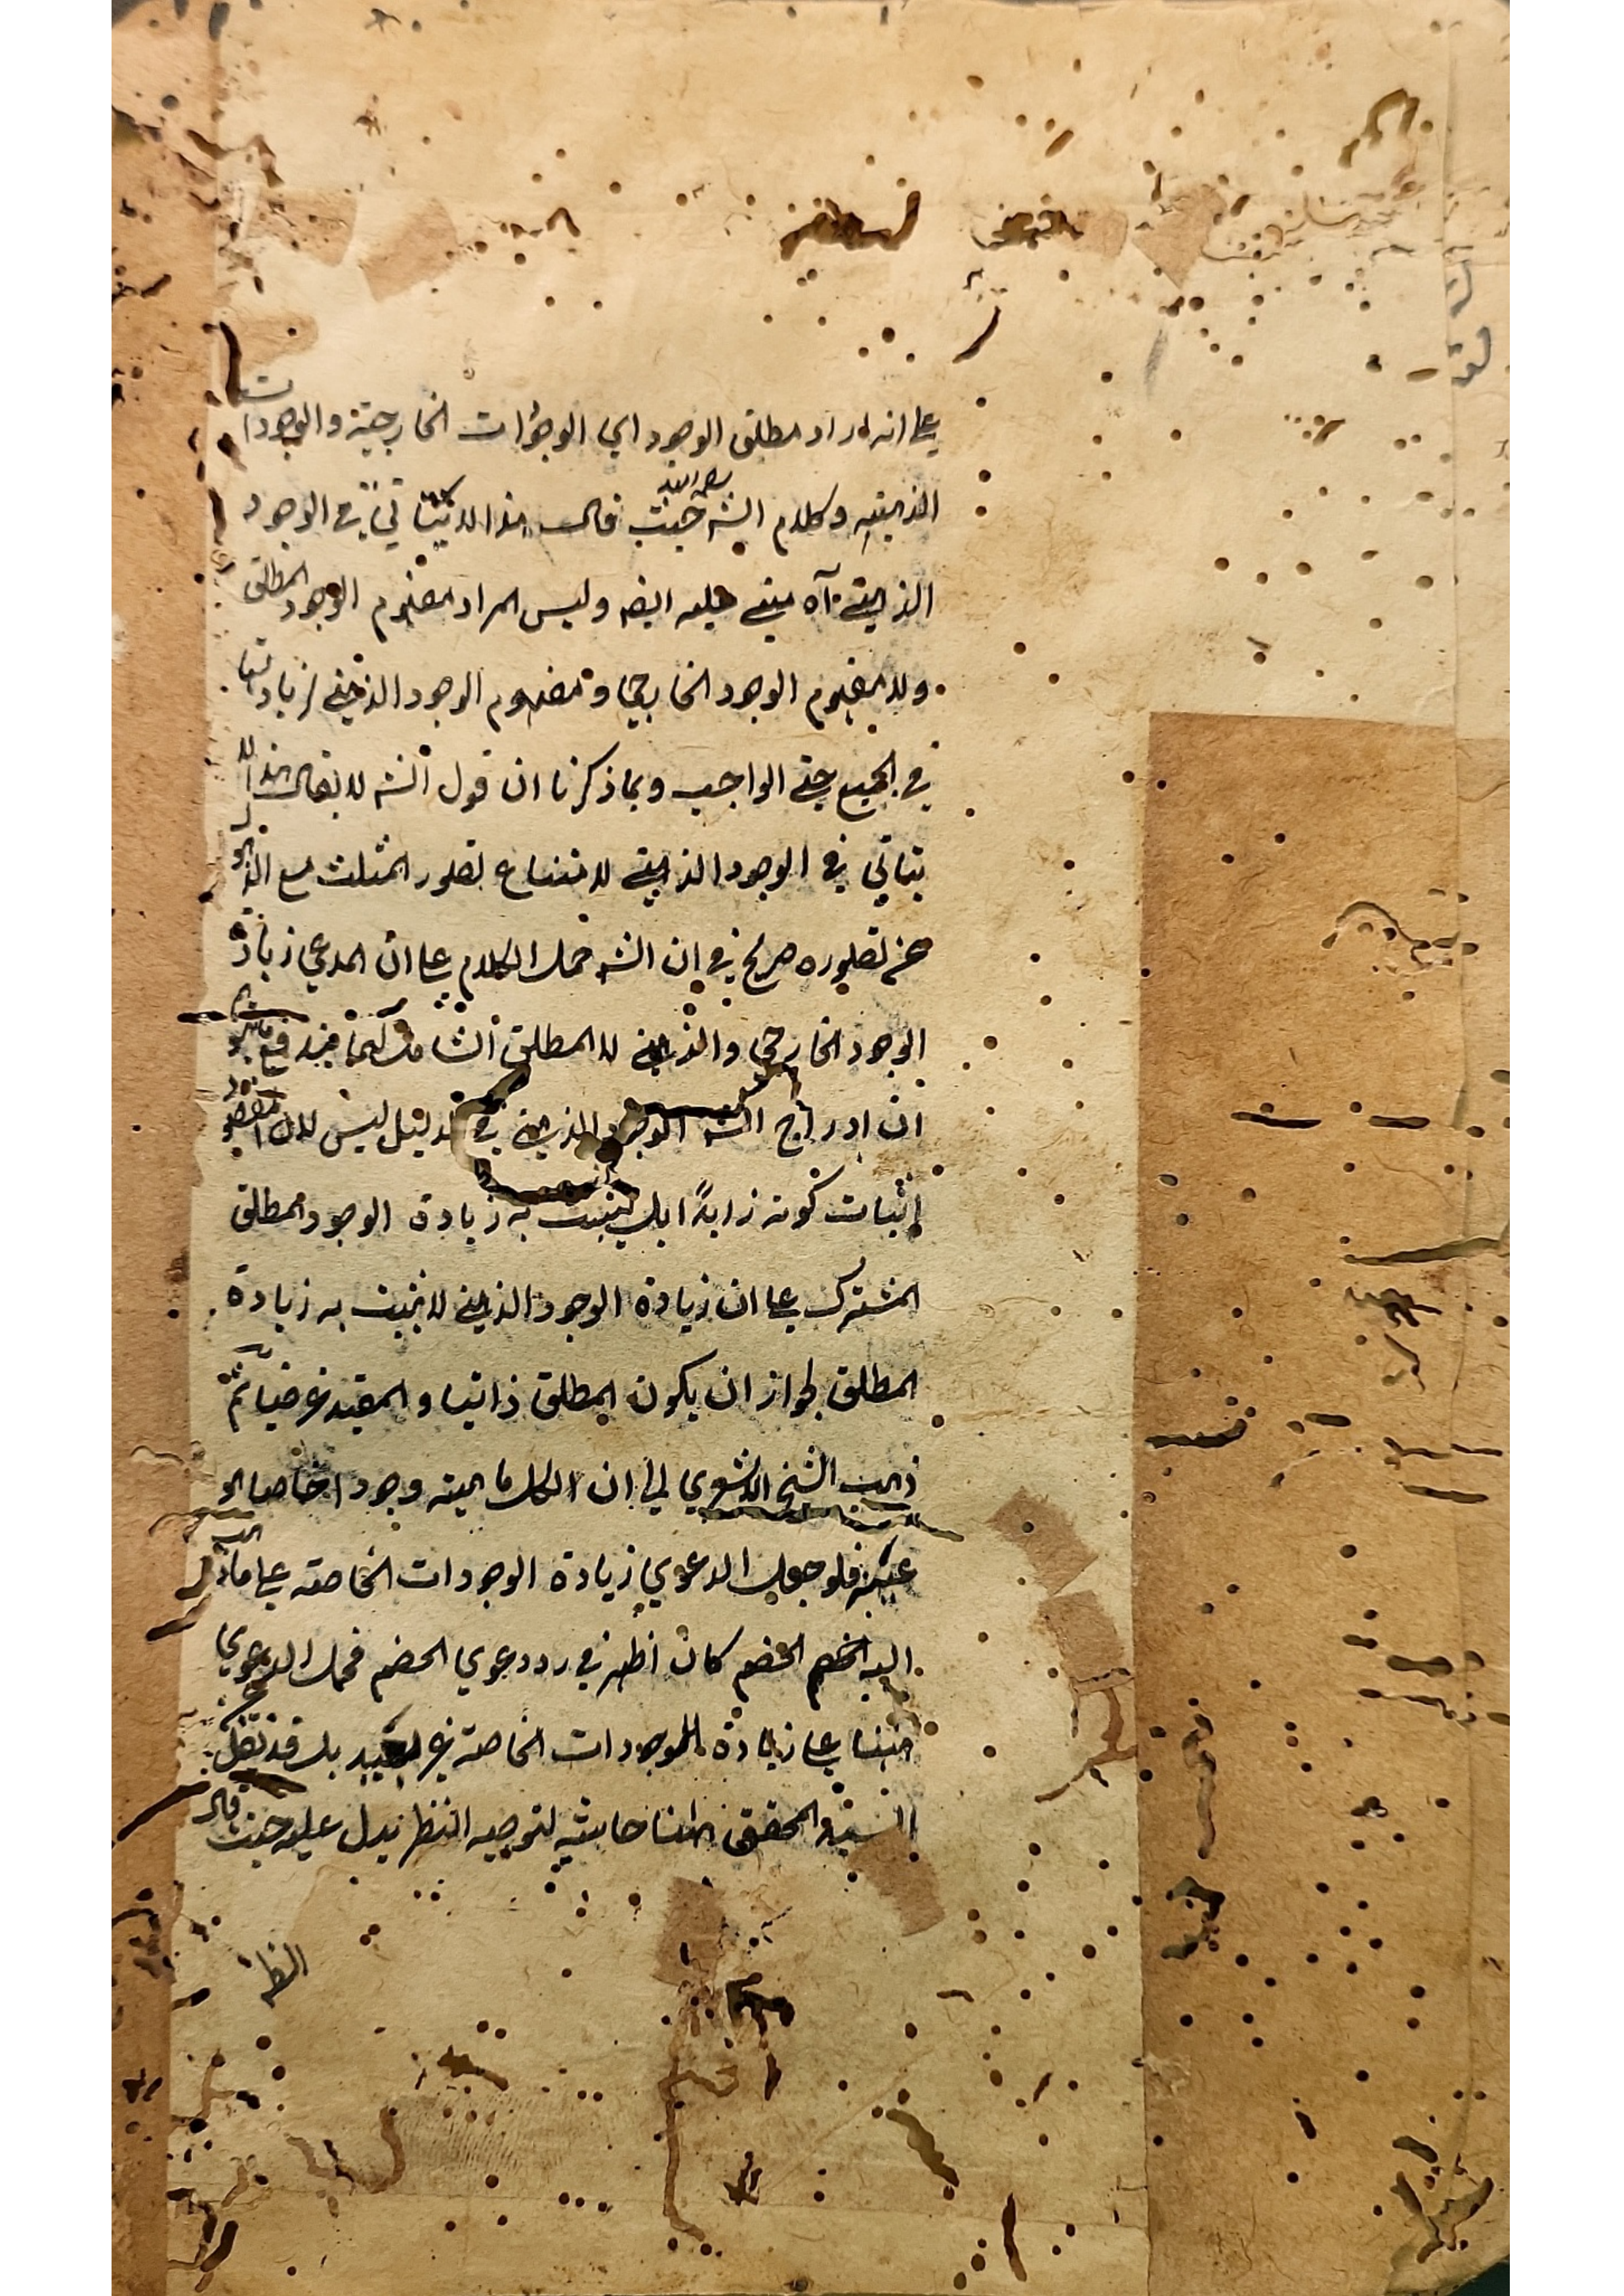 على انه اراد مطلق الوجود اي الوجودات الخارجية والوجودات
الذهنية وكلام الشه حيث قال هذا لا يتأتى في الوجود
الذهني آه مبني عليه ايضه وليس المراد مفهوم الوجود المطلق
ولا مفهوم الوجود الخارجي او مفهوم الوجود الذهني لزيادتها
في الجميع حتى الواجب وبما ذكرنا ان قول الشه لا يقال هذا لا
يتأتى في الوجود الذهني لامتناع تصور المثلث مع الذهول
عن تصوره صريح في ان الشه حمل الكلام على ان المدعى زيادة
الوجود الخارجي والذهني لا المطلق الشامل لهما فيندفع
ان ادراج الشه الوجود الذهني في الدليل ليس لان المقصود
اثبات كونه زايدًا بل ليثبت به زيادة الوجود المطلق
المشترك على ان زيادة الوجود الذهني لا يثبت به زيادة
المطلق لجواز ان يكون المطلق ذاتيا والمقيد عرضيا ثم
ذهب الشيخ الاشعري الى ان لكل ماهية وجودا خاصا هو
عينه فلو جعل الدعوي زيادة الوجودات الخاصة على ما ذهب
اليه الخصم كان اظهر في رد دعوي الخصم فحمل الدعوي
ههنا على زيادة الموجودات الخاصة غير بعيد بل قد نقل
السيد المحقق ههنا حاشية لتوجيه النظر يدل عليه حيث قال
النظر